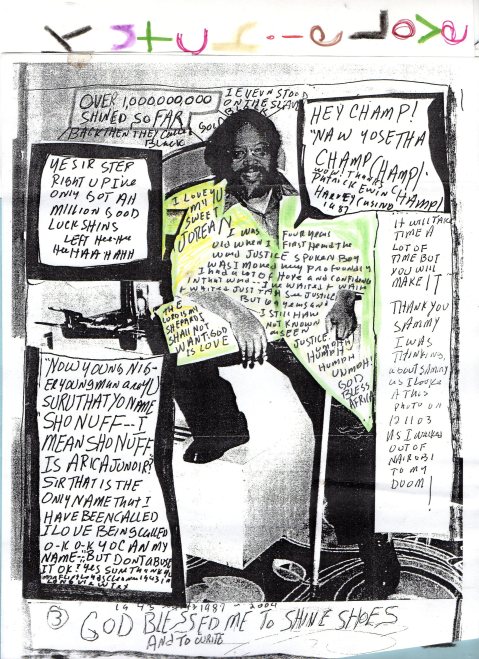 Kuturie Love
OVER 1,000,000,000
SHINED SO FAR
BACK THEN THEY CALLED
BLACK
I EVEUN STOOD
ON THE SLAVE
BLOCK
HEY CHAMP!
"NAW YOSETHA
CHAMP CHAMP!
CHAMP!
PATRICK EWIN
HARVEY CASINO
1987
YE SIR STEP
RIGHT UP I'VE
ONLY GOT AH
MILLION GOOD
LUCK SHINS
LEFT HEE-HEE
HEE HAA HAHH
I LOVE YOU
MY
SWEET
JOREAN
I WAS FOUR YEARS
OLD WHEN I FIRST HEARD THE
WORD JUSTICE SPOKEN BOY
WAS I MOVED VERY PROFOUNDLY
I HAD A LOT OF HOPE AND CONFIDENCE
IN THAT WORD
BUT 60 YEARS AND
I STILL HAVE
NOT KNOWN
OR SEEN
JUSTICE
UMUMPH
HUMPH
HUMPH
UUMPH!
GOD
BLESS
AFRICA
THE
LORD IS MY
SHEPARD I
SHALL NOT
WANT: GOD
IS LOVE
IT WILL TAKE
TIME A
LOT OF
TIME BUT
YOU WILL
MAKE IT
THANK YOU
SAMMY
I WAS
THINKING,
ABOUT SAMMY
AS I LOOKE
A THIS
PHOTO ON
12 11 03
AS I WALKED
OUT OF
NAIROBI
TO MY
DOOM!
"NOW YOUNG NIG-
ER YOUNG MAN ARE YOU
SURU THAT YO NAME
SHO NUFF--I
MEAN SHO NUFF
IS ARICA JUNOIR?
SIR THAT IS THE
ONLY NAME THAT I
HAVE BEEN CALLED
I LOVE BEING CALLED
O-K-O-K YOC AN MY
NAME: BUT DONT ABUSE
IT OK? YES SUM THANK U
1945 1987 - 2004
3 GOD BLESSED ME TO SHINE SHOES
AND TO WRITE